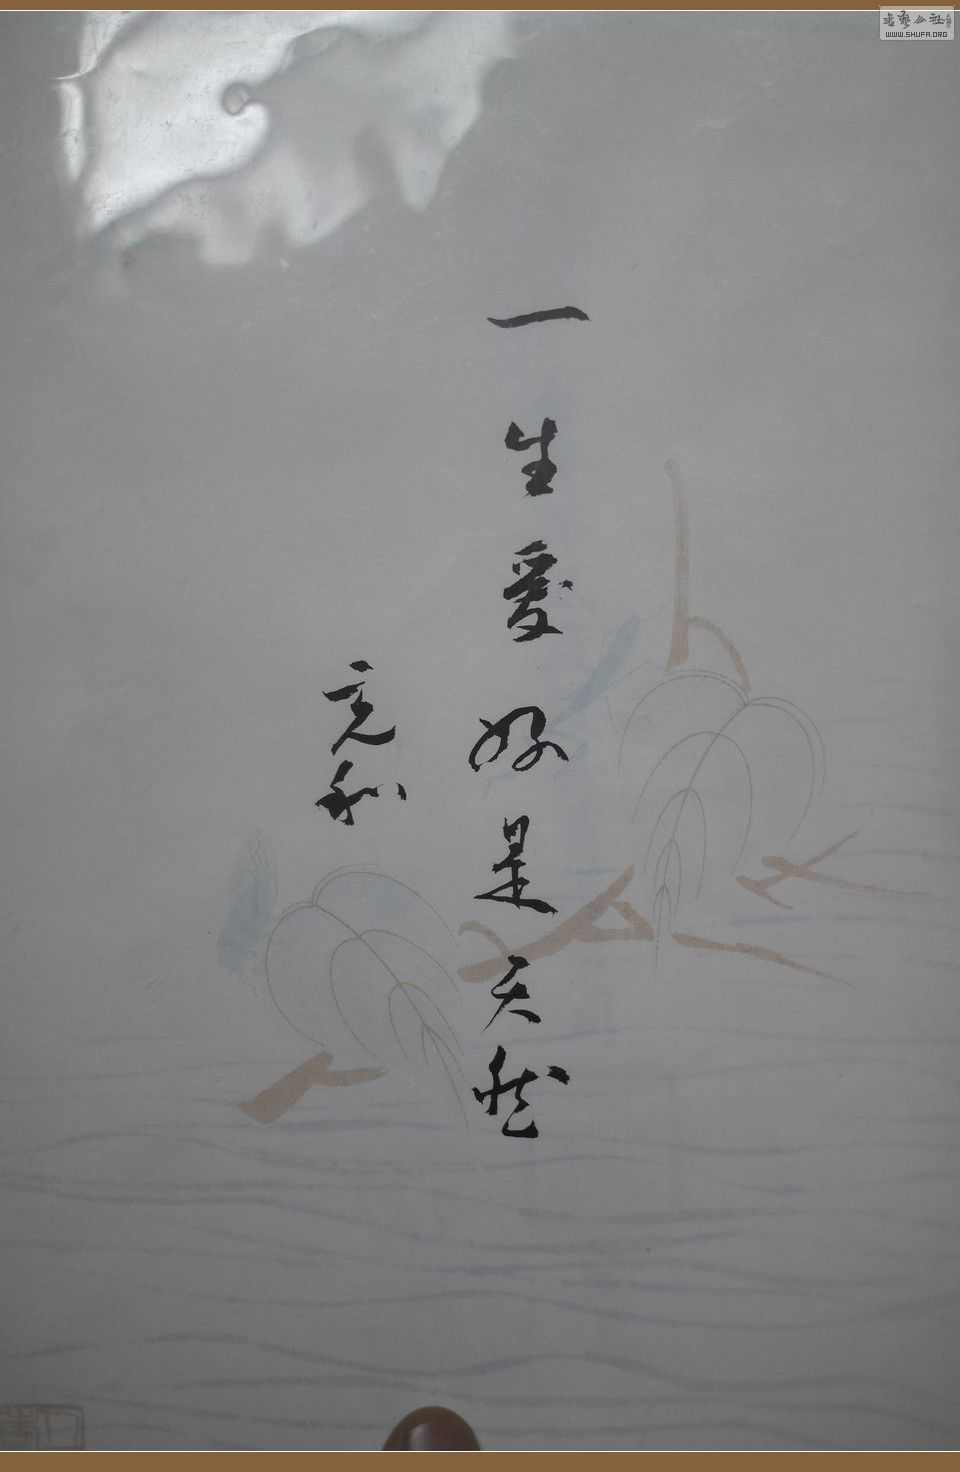 一生爱好是天然
充和
书艺公社
WWW.SHUFA.ORG